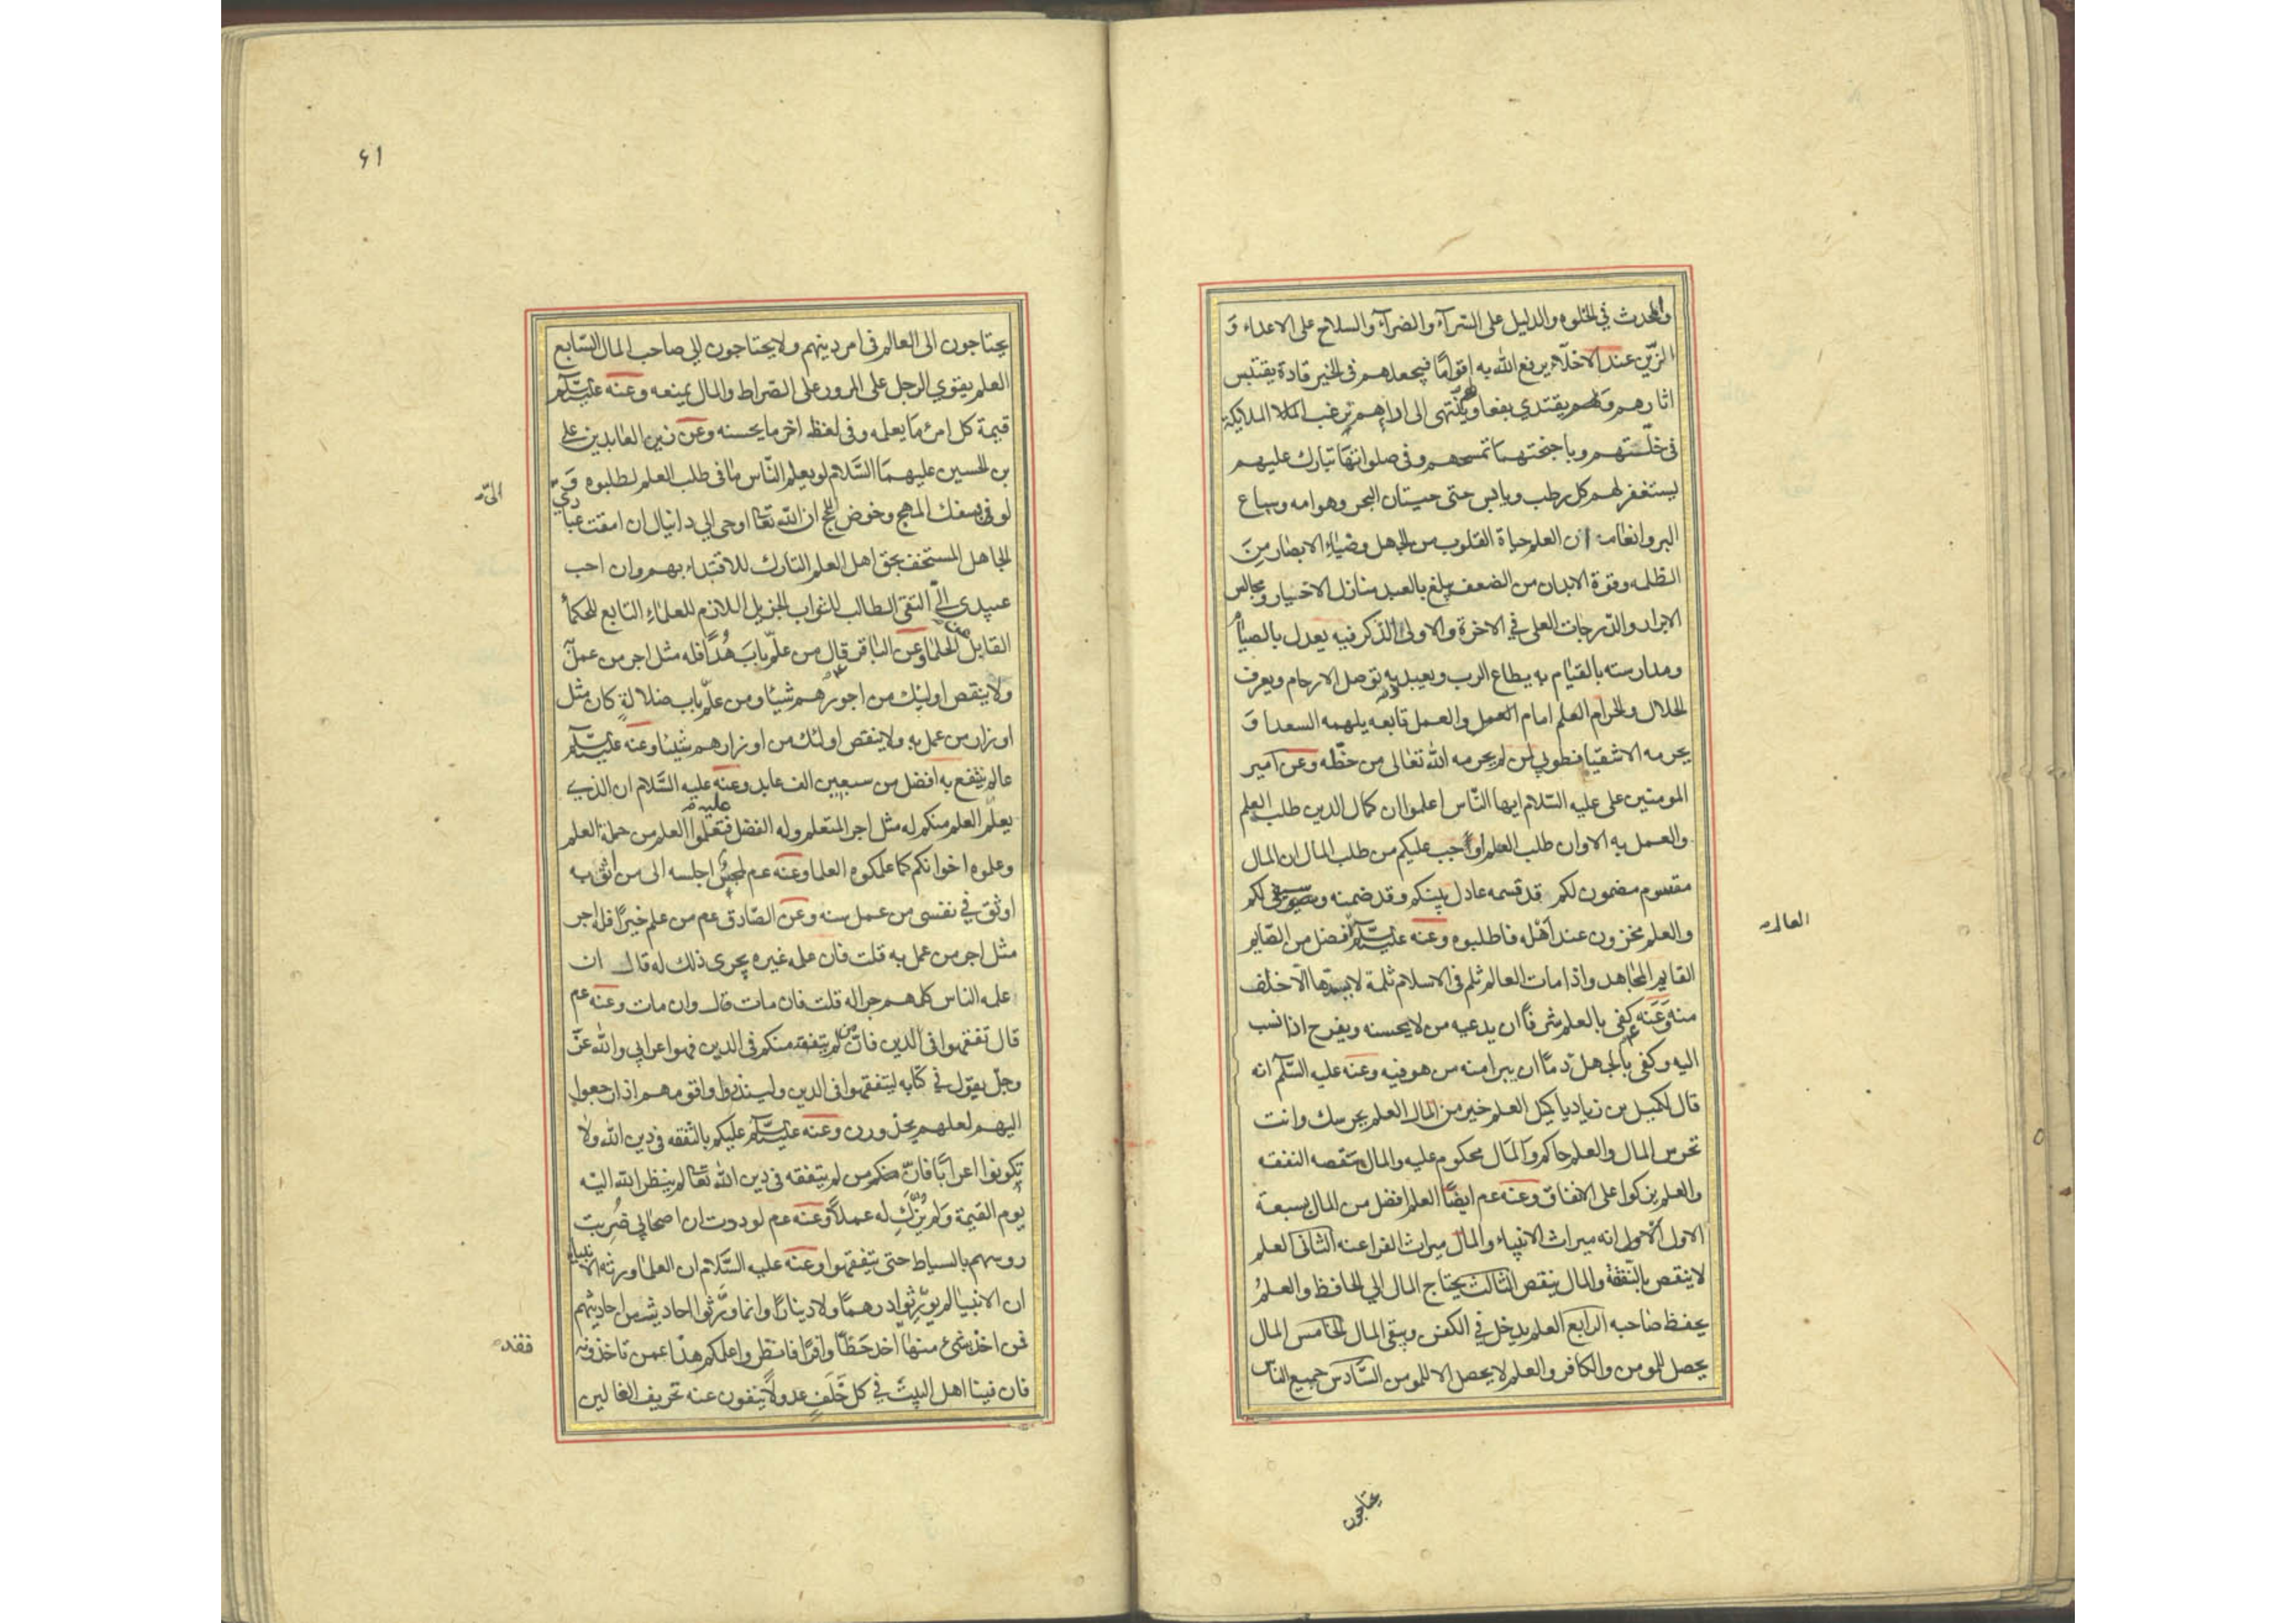 والمحدث في الخلوه والدليل على السّرآء والضرآء والسلاح على الاعداء وَ
الزّين عند الاخلّاء يرفع الله به اقوامًا فيجعلهم في الخير قادة يقتبس
اثارهم ويقتدي بفعالهم وينتهى الى ارائهم ترغب الملائكة
في خلّتهم وباجنحتها تمسحهم وفى صلواتها تبارك عليهم
يستغفر لهم كل رطب ويابس حتى حيتان البحر وهوامه وسباع
البر وانعامه ان العلم حياة القلوب من الجهل وضياء الابصار مِنَ
الظلمه وقوة الابدان من الضعف يبلغ بالعبد منازل الاخيار ومجالس
الابرار والدّرجات العلى في الاخرة والاولى الذكر فيه يعدل بالصيام
ومدارسته بالقيام به يطاع الرب ويعبد وبه توصل الارحام ويعرف
الحلال والحرام العلم امام العمل والعمل تابعه يلهمه السعدا وَ
يحرمه الاشقيا فطوبى لمن لم يحرمه الله تعالى من حظّه وعن امير
المومنين على عليه السّلام ايها النّاس اعلموا ان كمال الدين طلب العلم
والعمل به الا وان طلب العلم اوجب عليكم من طلب المال ان المال
مقسوم مضمون لكم قد قسمه عادل بينكم وقد ضمنه وسيفي لكم
والعلم مخزون عند اَهْله فاطلبوه وعنه عليه السّلم افضل من الصّايم
العالم
القايم المجاهد واذا مات العالم ثلم فى الاسلام ثلمة لا يسدّها الّا خلف
منه وَعَنه ع م كفى بالعلم شرفًا ان يدعيه من لا يحسنه ويفرح اذا نسب
اليه وكفى بالجهل ذمًّا ان يبرا منه من هو فيه وعنه عليه السّلم انه
قال لكميل بن زياد يا كميل العلم خير من المال العلم يحرسك وانت
تحرس المال والعلم حاكم والمال محكوم عليه والمال تنقصه النفقه
والعلم يزكوا على الانفاق وعنه عم ايضًا العلم افضل من المال بسبعة
الاول الاول انه ميراث الانبياء والمال ميراث الفراعنه الثانى العلم
لا ينقص بالنّفقة والمال ينقص الثالث يحتاج المال الى الحافظ والعلمُ
يحفظ صاحبه الرابع العلم يدخل في الكفن ويبقى المال الخامس المال
يحصل للمومن والكافر والعلم لا يحصل الا للمومن السَّادس جميع الناس
يحتاجون
٤١
يحتاجون الى العالم فى امر دينهم ولا يحتاجون الى صاحب المال السّابع
العلم يقوي الرجل على المرور على الصّراط والمال يمنعه وعنه عليه السّلم
قيمة كل امرئ مَا يعلمه وفى لفظ اخر ما يحسنه وعن زين العابدين على
بن الحسين عليهمَا السَّلام لو يعلم النّاس مَا فى طلب العلم لطلبوه وَ
لو فى بسفك المهج وخوض اللجج ان الله تعا اوحى الى دانيال ان امقت عبادي
الىّ
الجاهل المستخف بحق اهل العلم التارك للاقتداء بهم وان احب
عبيدى الىّ التقى الطالب للثواب الجزيل اللازم للعلماء التابع للحكمأ
القابل عن الحكما وعن الباقر ع م قال من علّم بَابَ هُدًى فله مثل اجر من عمل به
ولا ينقص اوليك من اجورهم شيئا ومن علّم باب ضلالةٍ كان مثل
اوزار من عمل به ولا ينقص اولئك من اوزارهم شيئا وعنه عليه السّلم
عالم ينتفع به افضل من سبعين الف عابد وعنه عليه السَّلام ان الذي
يعلّم العلم منكم له مثل اجر المتعلم وله الفضل عليه فتعلّموا العلم من حملة العلم
وعلموه اخوانكم كما علمكوه العلما وعنه عم لمجلس اجلسه الى من اثق به
اوثق في نفسى من عمل سنه وعن الصّادق عم من علم خيرًا فله اجر
مثل اجر من عمل به قلت فان علمه غيره يجرى ذلك له قال ان
علمه الناس كلهم جرا له قلت فان مات قال وان مات وعنه عم
قال تفقهوا فى الدّين فانّ من لم يتفقه منكم فى الدين فهو اعرابي والله عزّ
وجلّ يقول في كتابه ليتفقهوا فى الدين ولينذروا قومهم اذا رجعوا
اليهم لعلهم يحذرون وعنه عليه السّلم عليكم بالتّفقه في دين الله ولا
تكونوا اعرابًا فانّ منكم من لم يتفقه فى دين الله تعا لم ينظر الله اليه
يوم القيمة وَلم يُزَكِّ له عملاً وعنه عم لوددت ان اصحابي ضُرِبت
روسهم بالسياط حتى يتفقهوا وعنه عليه السَّلام ان العلما ورثه الانبياء
ان الانبيا لم يورّثوا درهمًا ولا دينارًا وانما ورّثوا احاديث من احاديثهم
فمن اخذ بشئ منها اخذ حَظًّا وافرًا فانظروا علمكم هذا عمن تاخذونه
فقد
فان فينا اهل البيت في كل خَلَفٍ عدولًا ينفون عنه تحريف الغالين